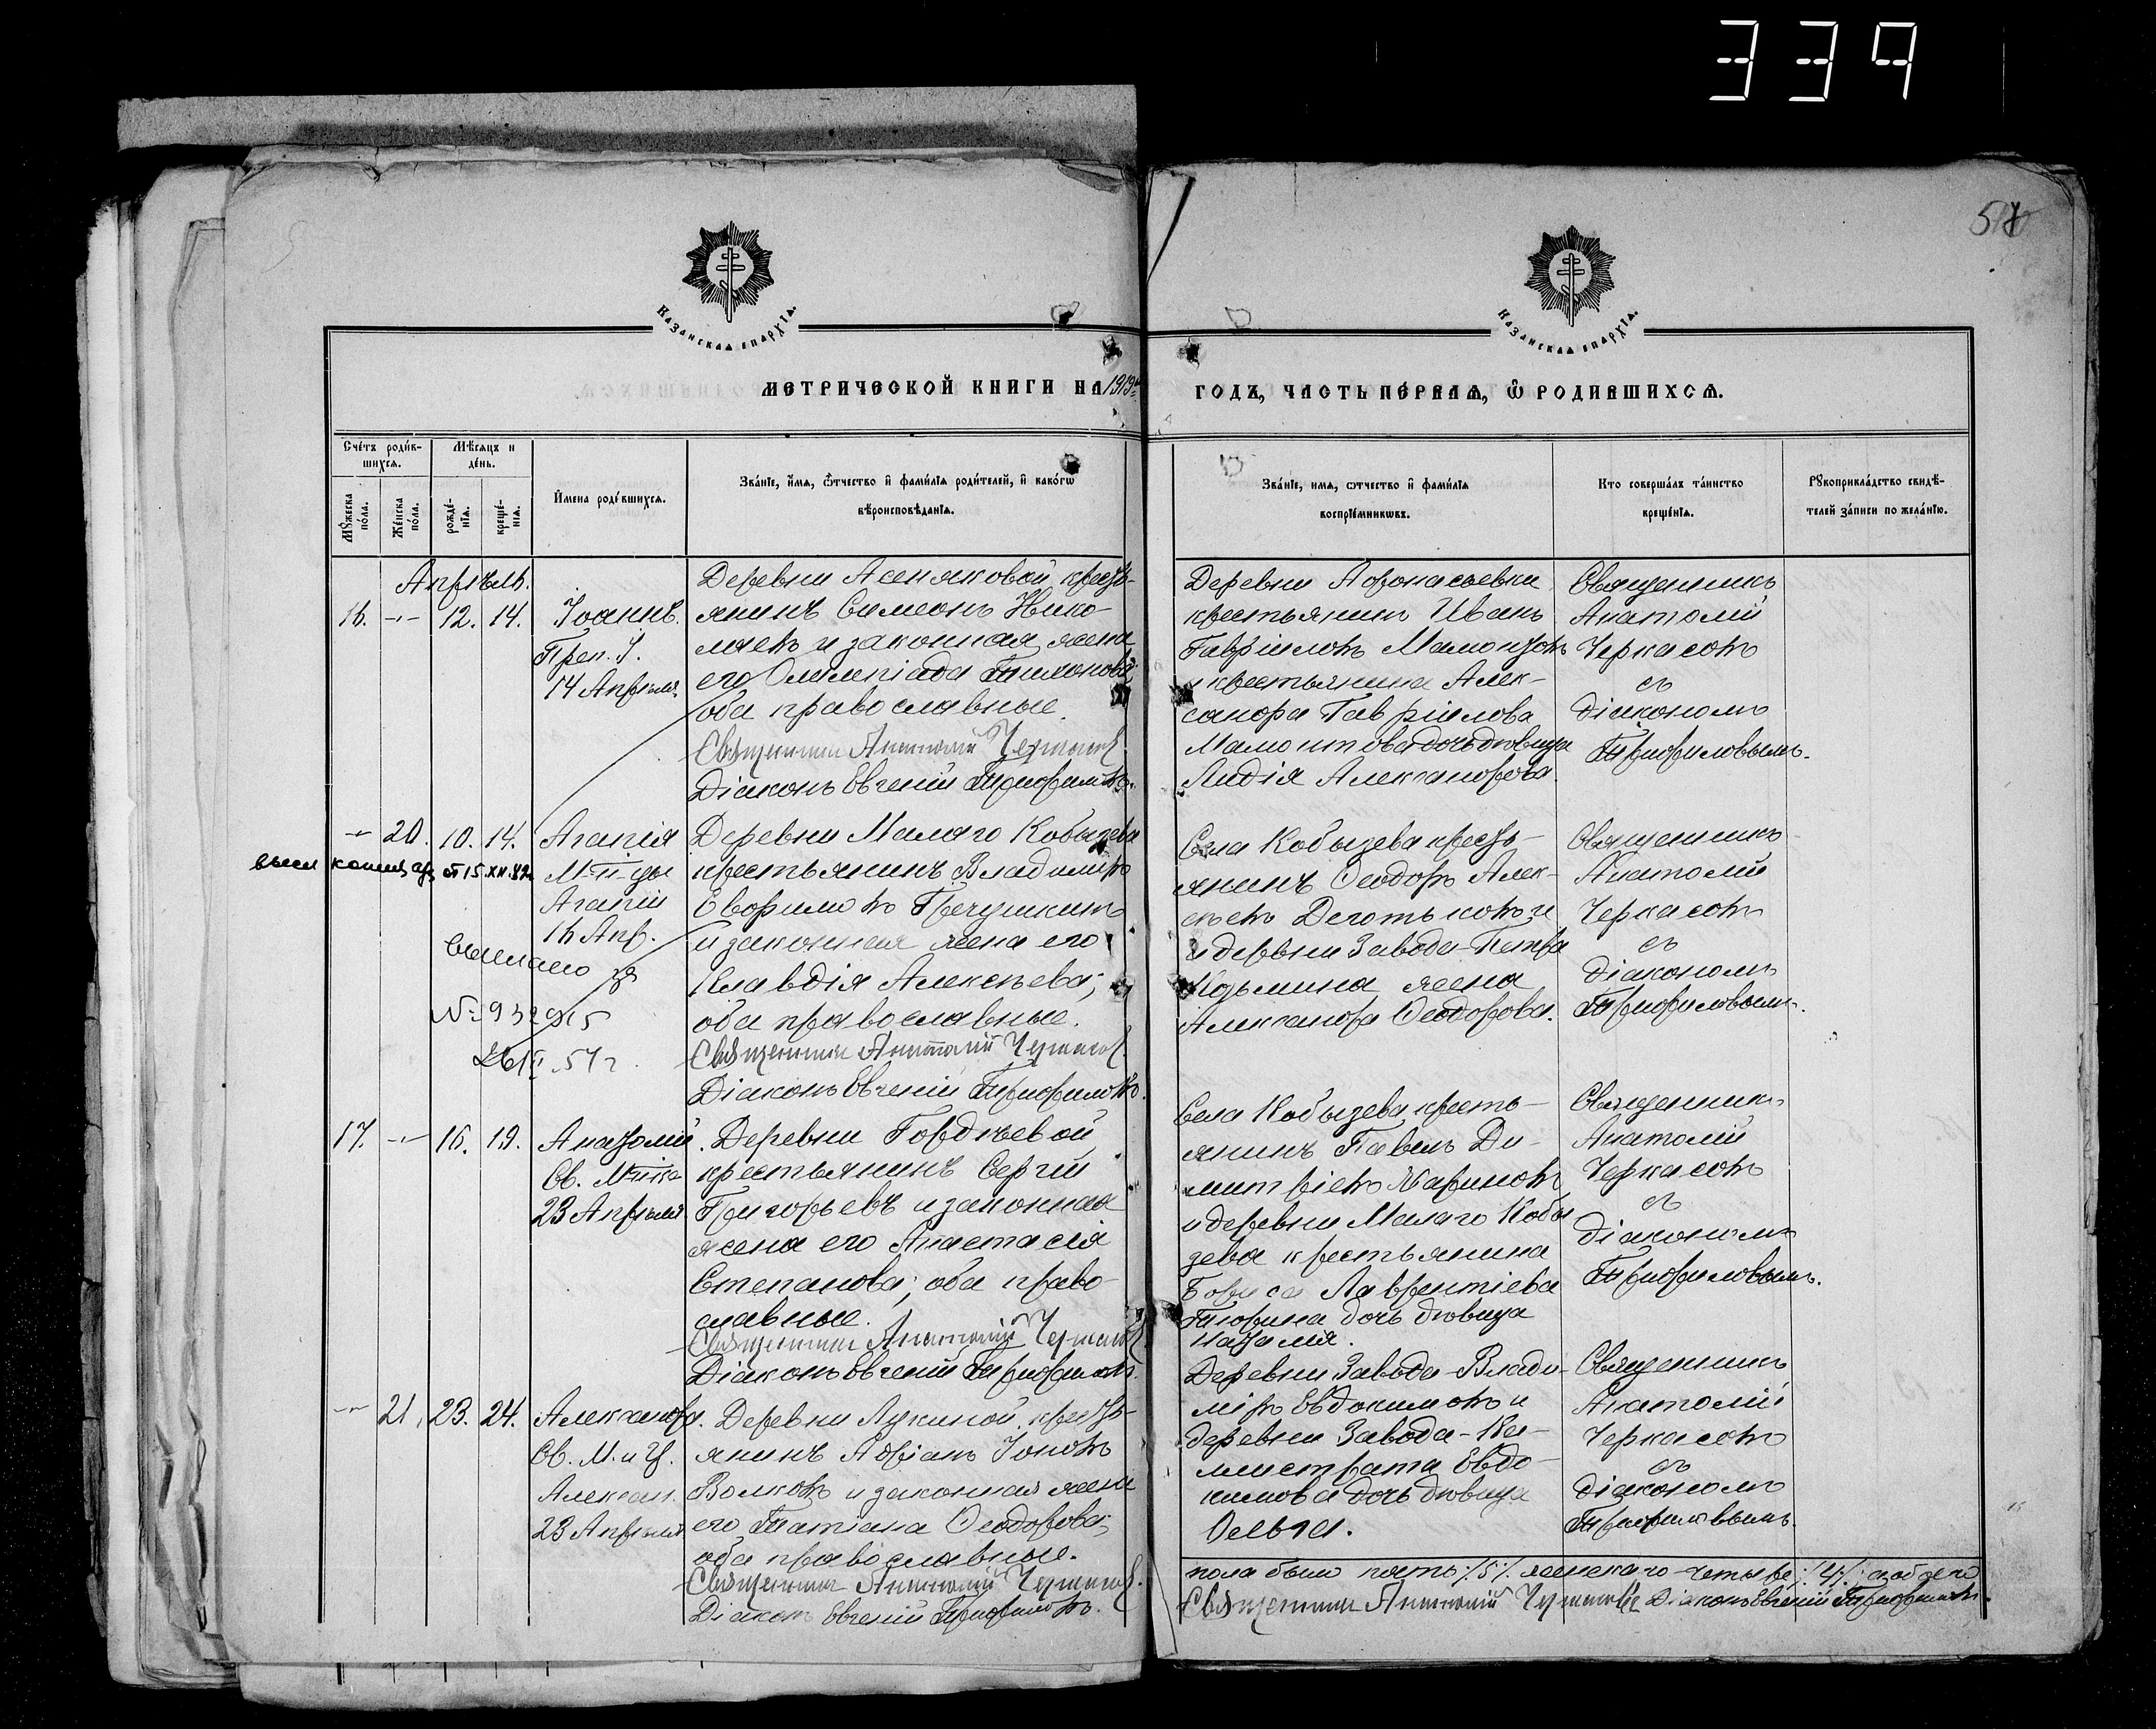 339
51
Казанская епархія.
Казанская епархія.
Метрической книги на 1919й
годъ, часть первая, ѡ родившихся.
Счетъ родив-
шихся.
Мѣсяцъ и
день.
Мужеска
пола.
Женска
пола.
рожде-
нія.
креще-
нія.
Имена родившихся.
Званіе, имя, отчество и фамилія родителей, и какогѡ
вѣроисповѣданія.
Званіе, имя, отчество и фамилія
воспріемниковъ.
Кто совершалъ таинство
крещенія.
Рукоприкладство свидѣ-
телей записи по желанію.
Апрѣль.
16. -"- 12. 14.
Іоаннъ.
Преп. І.
14 Апрѣля.
Деревни Асеняковой, кресть-
янинъ Симеонъ Нико-
лаевъ и законная жена
его Олимпіада Тихонова;
оба православные.
Священникъ Анатолій Черкасовъ.
Діаконъ Евгеній Трифиловъ.
Деревни Афонасьевки
крестьянинъ Иванъ
Гавріиловъ Мамонтовъ
и крестьянина Алек-
сандра Гавріилова
Мамонтова дочь дѣвица
Лидія Александрова.
Священникъ
Анатолій
Черкасовъ
съ
діакономъ
Трифиловымъ.
-"- 20. 10. 14.
Агапія
М-ицы
Агапіи
16 Апр.
Деревни Малаго Кобызева
крестьянинъ Владиміръ
Евфимовъ Пречушкинъ
и законная жена его
Клавдія Алексѣева;
оба православные.
Священникъ Анатолій Черкасовъ.
Діаконъ Евгеній Трифиловъ.
15.XII.82
Выслано за
№ 932915
54 г.
Села Кобызева кресть-
янинъ Ѳеодоръ Алек-
сѣевъ Деготьковъ и
и деревни Завода-Петра
Козьмина жена
Александра Ѳеодорова.
Священникъ
Анатолій
Черкасовъ
съ
діакономъ
Трифиловымъ.
17. -"- 16. 19.
Анатолій.
Св. М-ика
23 Апрѣля
Деревни Гордѣевой
крестьянинъ Сергій
Григорьевъ и законная
жена его Анастасія
Степанова; оба право-
славные.
Священникъ Анатолій Черкасовъ
Діаконъ Евгеній Трифиловъ.
Села Кобызева кресть-
янинъ Павелъ Ди-
митріевъ Жариновъ
и деревни Малаго Кобы
зева крестьянина
Бориса Лаврентіева
Тюрина дочь дѣвица
Священникъ
Анатолій
Черкасовъ
съ
діакономъ
Трифиловымъ.
-"- 21. 23. 24.
Александра.
Св. М. и Ц.
Алексан.
23 Апрѣля
Деревни Лукиной, кресть-
янинъ Адріанъ Іоновъ
Волковъ и законная жена
его Татіана Ѳеодорова;
оба православные.
Священникъ Анатолій Черкасовъ.
Діаконъ Евгеній Трифиловъ.
Деревни Завода-Влади-
міръ Евдокимовъ и
деревни Завода-Ка-
листрата Евдо-
кимова дочь дѣвица
Священникъ
Анатолій
Черкасовъ
съ
діакономъ
Трифиловымъ.
пола было пять /:5:/ женскаго-четыре /:4:/ а обоего
Священникъ Анатолій Черкасовъ Діаконъ Евгеній Трифиловъ.